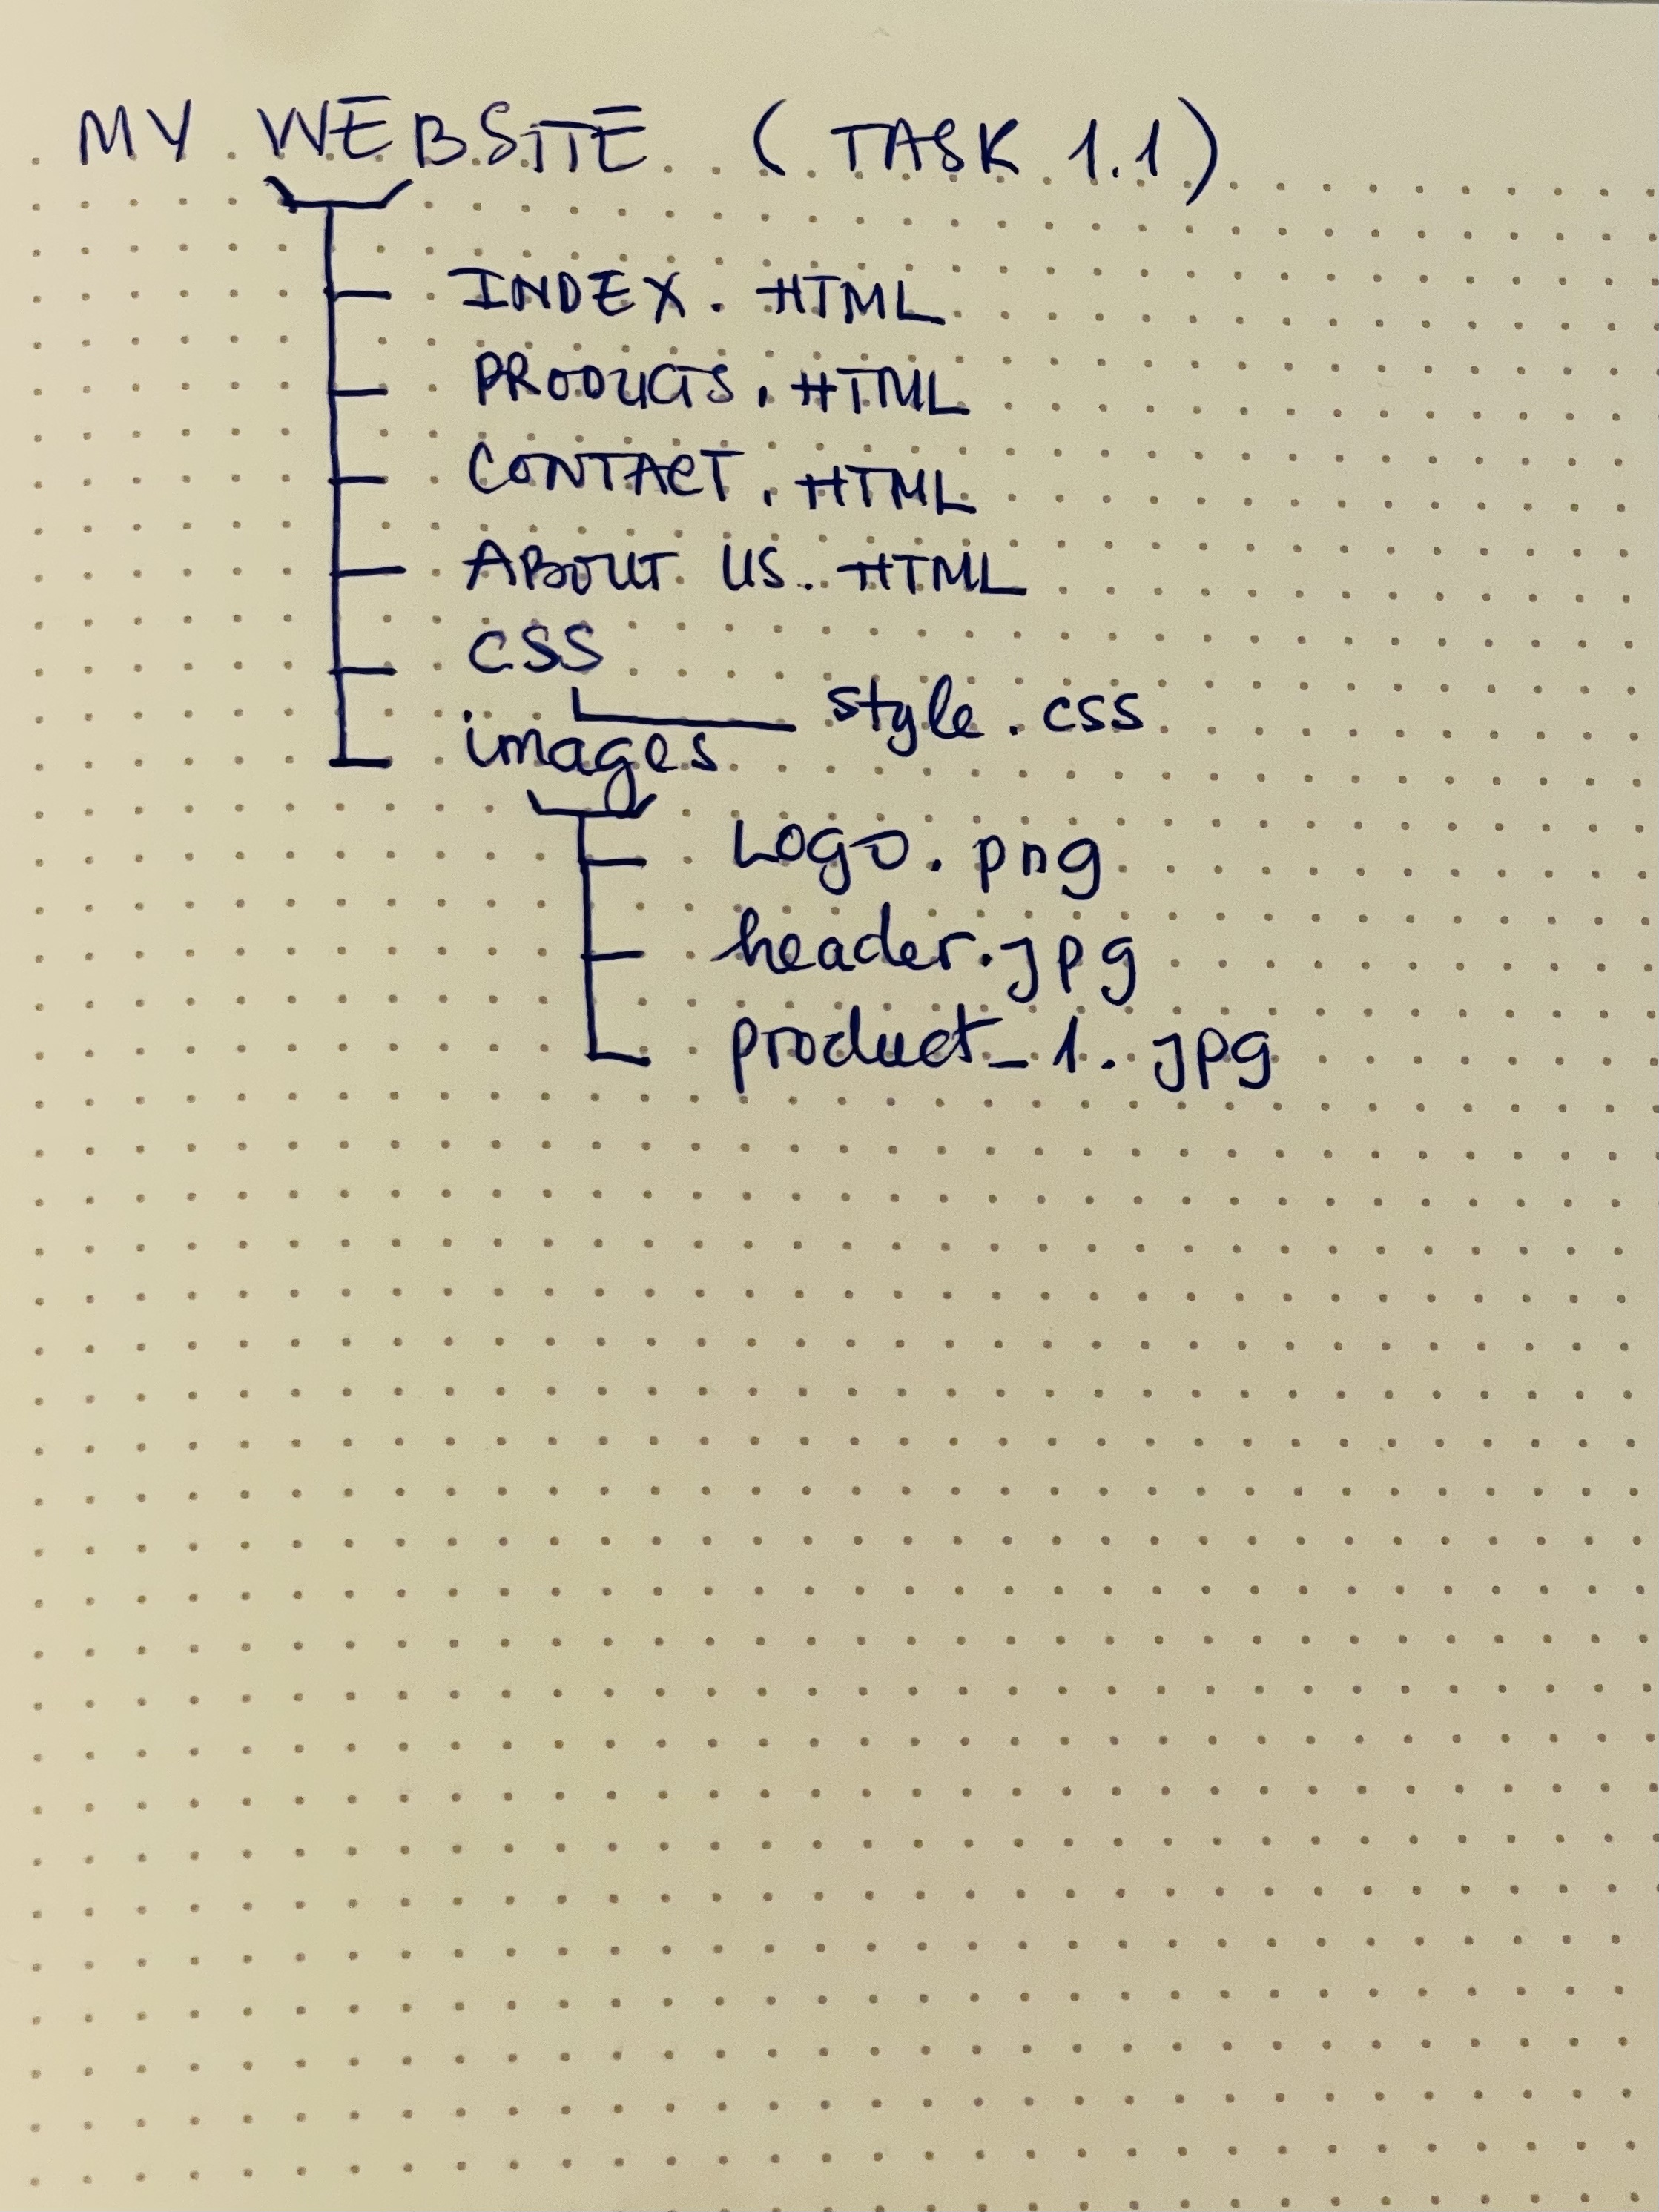 MY WEBSITE (TASK 1.1)
INDEX.HTML
PRODUCTS.HTML
CONTACT.HTML
ABOUT US.HTML
CSS
style.css
images
Logo.png
header.jpg
product_1.jpg